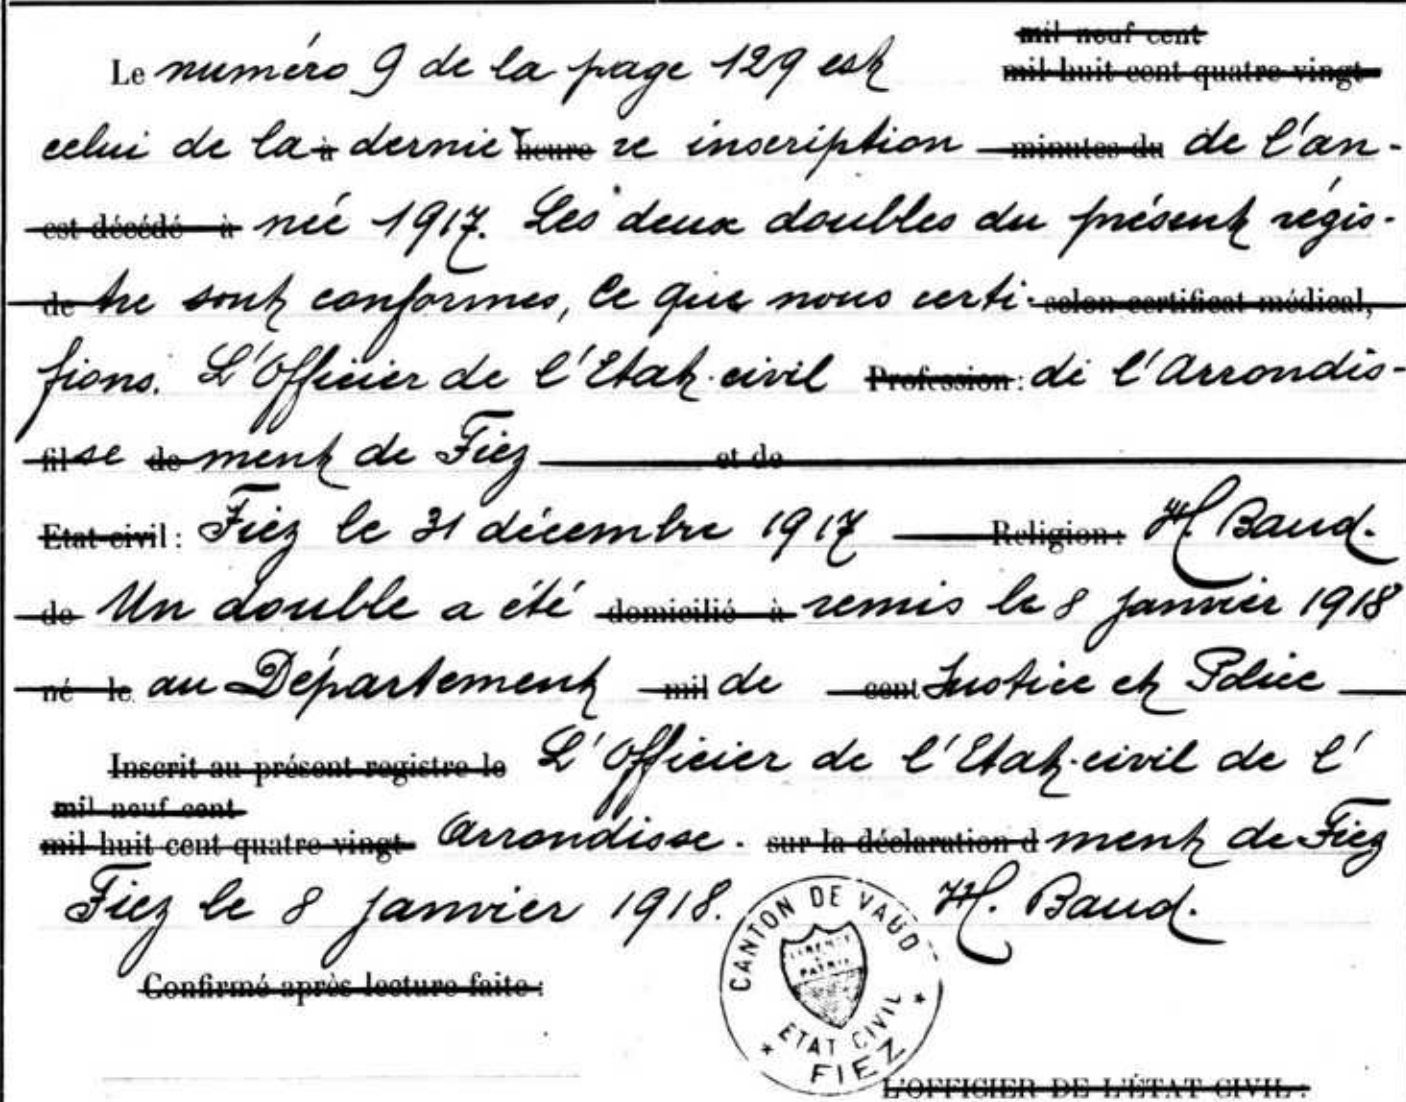 mil neuf cent
Le numéro 9 de la page 129 est mil huit cent quatre vingt
celui de la à dernie heure re inscription minutes du de l'an-
est décédé à née 1917. Les deux doubles du présent régis-
de tre sont conformes, ce que nous certi- selon certificat médical,
fions. L'Officier de l'Etat-civil Profession: de l'Arrondis-
fil se de ment de Fiez et de
Etat-civil: Fiez le 31 décembre 1917 Religion: H. Baud.
de Un double a été domicilié à remis le 8 janvier 1918
né le au Département mil de cent Justice et Police
Inscrit au présent registre le L'Officier de l'Etat-civil de l'
mil neuf cent
mil huit cent quatre vingt Arrondisse- sur la déclaration d ment de Fiez
Fiez le 8 janvier 1918. H. Baud.
CANTON DE VAUD
LIBERTÉ
ET
PATRIE
ETAT CIVIL
* FIEZ *
Confirmé après lecture faite:
L'OFFICIER DE L'ÉTAT CIVIL: